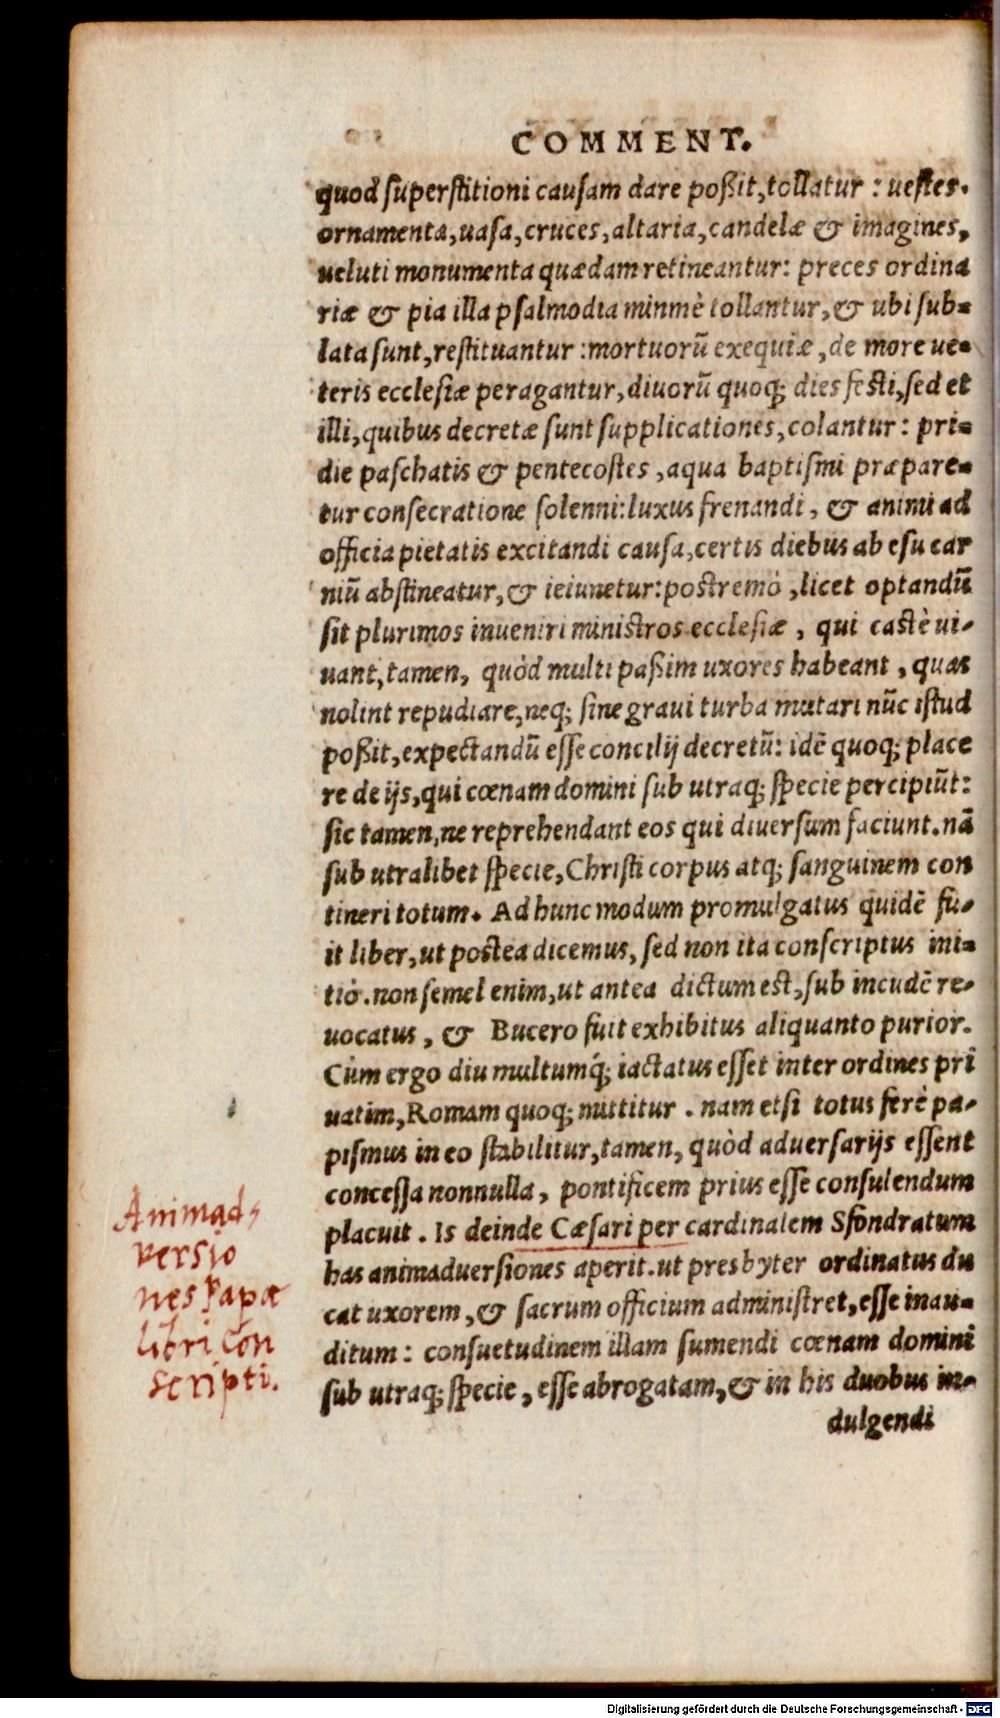 COMMENT.
quod superstitioni causam dare poßit, tollatur : uestes.
ornamenta, uasa, cruces, altaria, candelæ & imagines,
ueluti monumenta quædam retineantur: preces ordina
riæ & pia illa psalmodia minmè tollantur, & ubi sub-
lata sunt, restituantur : mortuorū exequiæ, de more ue-
teris ecclesiæ peragantur, diuorū quoq; dies festi, sed et
illi, quibus decretæ sunt supplicationes, colantur : pri-
die paschatis & pentecostes, aqua baptismi præpare-
tur consecratione solenni: luxus frenandi, & animi ad
officia pietatis excitandi causa, certis diebus ab esu car
niū abstineatur, & ieiunetur: postremò, licet optandū
sit plurimos inueniri ministros ecclesiæ, qui castè ui-
uant, tamen, quòd multi paßim uxores habeant, quas
nolint repudiare, neq; sine graui turba mutari nūc istud
poßit, expectandū esse concilij decretū: idē quoq; place
re de ijs, qui cœnam domini sub utraq; specie percipiūt:
sic tamen, ne reprehendant eos qui diuersum faciunt. nā
sub utralibet specie, Christi corpus atq; sanguinem con
tineri totum. Ad hunc modum promulgatus quidē fu-
it liber, ut postea dicemus, sed non ita conscriptus ini-
tiò. non semel enim, ut antea dictum est, sub incudē re-
uocatus, & Bucero fuit exhibitus aliquanto purior.
Cùm ergo diu multumq́; iactatus esset inter ordines pri
uatim, Romam quoq; mittitur. nam etsi totus ferè pa-
pismus in eo stabilitur, tamen, quòd aduersarijs essent
concessa nonnulla, pontificem prius esse consulendum
placuit. Is deinde Cæsari per cardinalem Sfondratum
has animaduersiones aperit. ut presbyter ordinatus du
cat uxorem, & sacrum officium administret, esse inau-
ditum : consuetudinem illam sumendi cœnam domini
sub utraq; specie, esse abrogatam, & in his duobus in-
dulgendi
Animad,
versio
nes Papæ
libri con
scripti.
Digitalisierung gefördert durch die Deutsche Forschungsgemeinschaft - DFG